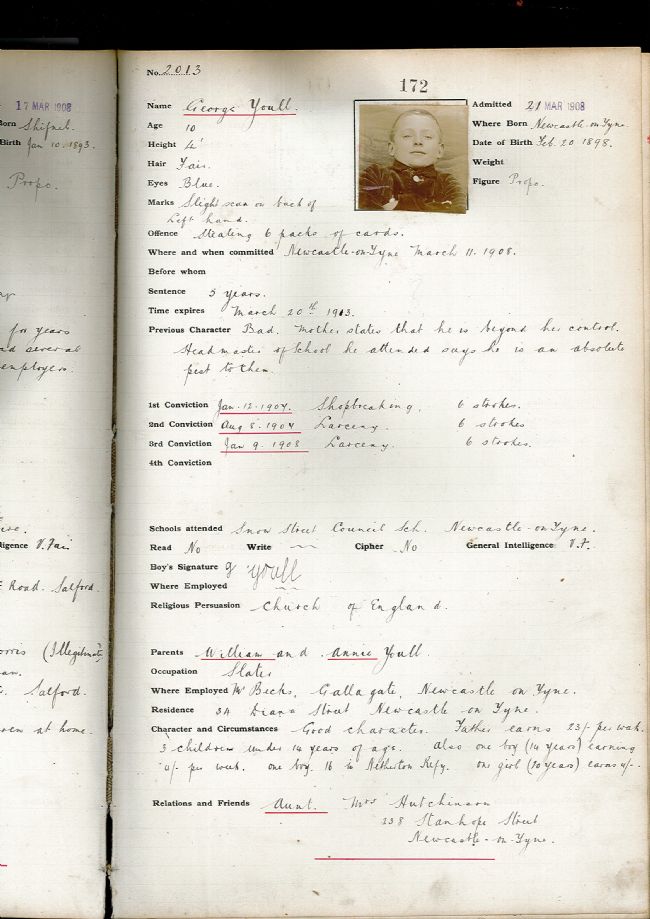 17 MAR 1908
Born Shifnal.
Birth Jan 10. 1893.
Propo.
for years
and several
employers.
ligence V. Fair
Road. Salford.
(Illegitimate
Salford.
at home.
No. 2013
172
Name George Youll.
Admitted 21 MAR 1908
Age 10
Where Born Newcastle-on-Tyne
Height 4'
Date of Birth Feb. 20 1898.
Hair Fair.
Weight
Eyes Blue.
Figure Propo.
Marks Slight scar on back of
Left hand.
Offence Stealing 6 packs of cards.
Where and when committed Newcastle-on-Tyne March 11. 1908.
Before whom
Sentence 5 years.
Time expires March 20th 1913.
Previous Character Bad. Mother states that he is beyond her control.
Headmaster of School he attended says he is an absolute
pest to them.
1st Conviction Jan. 12. 1907. Shopbreaking. 6 strokes.
2nd Conviction Aug 8. 1907 Larceny. 6 strokes
3rd Conviction Jan 9. 1908 Larceny. 6 strokes.
4th Conviction
Schools attended Snow Street Council Sch. Newcastle-on-Tyne.
Read No Write Cipher No General Intelligence V.F.
Boy's Signature g youll
Where Employed
Religious Persuasion Church of England.
Parents William and Annie Youll.
Occupation Slater
Where Employed Becks, Gallagate, Newcastle on Tyne.
Residence 34 Diana Street Newcastle on Tyne.
Character and Circumstances Good character. Father earns 23/- per week.
3 children under 14 years of age. Also one boy (14 years) earning
per week. one boy 16 in Netherton Refy. one girl (20 years) earns
Relations and Friends Aunt. Mrs Hutchinson
238 Stanhope Street
Newcastle-on-Tyne.